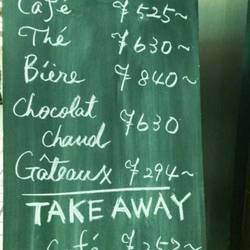 Café ¥525~
Thé ¥630~
Bière ¥840~
Chocolat
chaud ¥630
Gâteaux ¥294~
TAKE AWAY
Café ¥252~